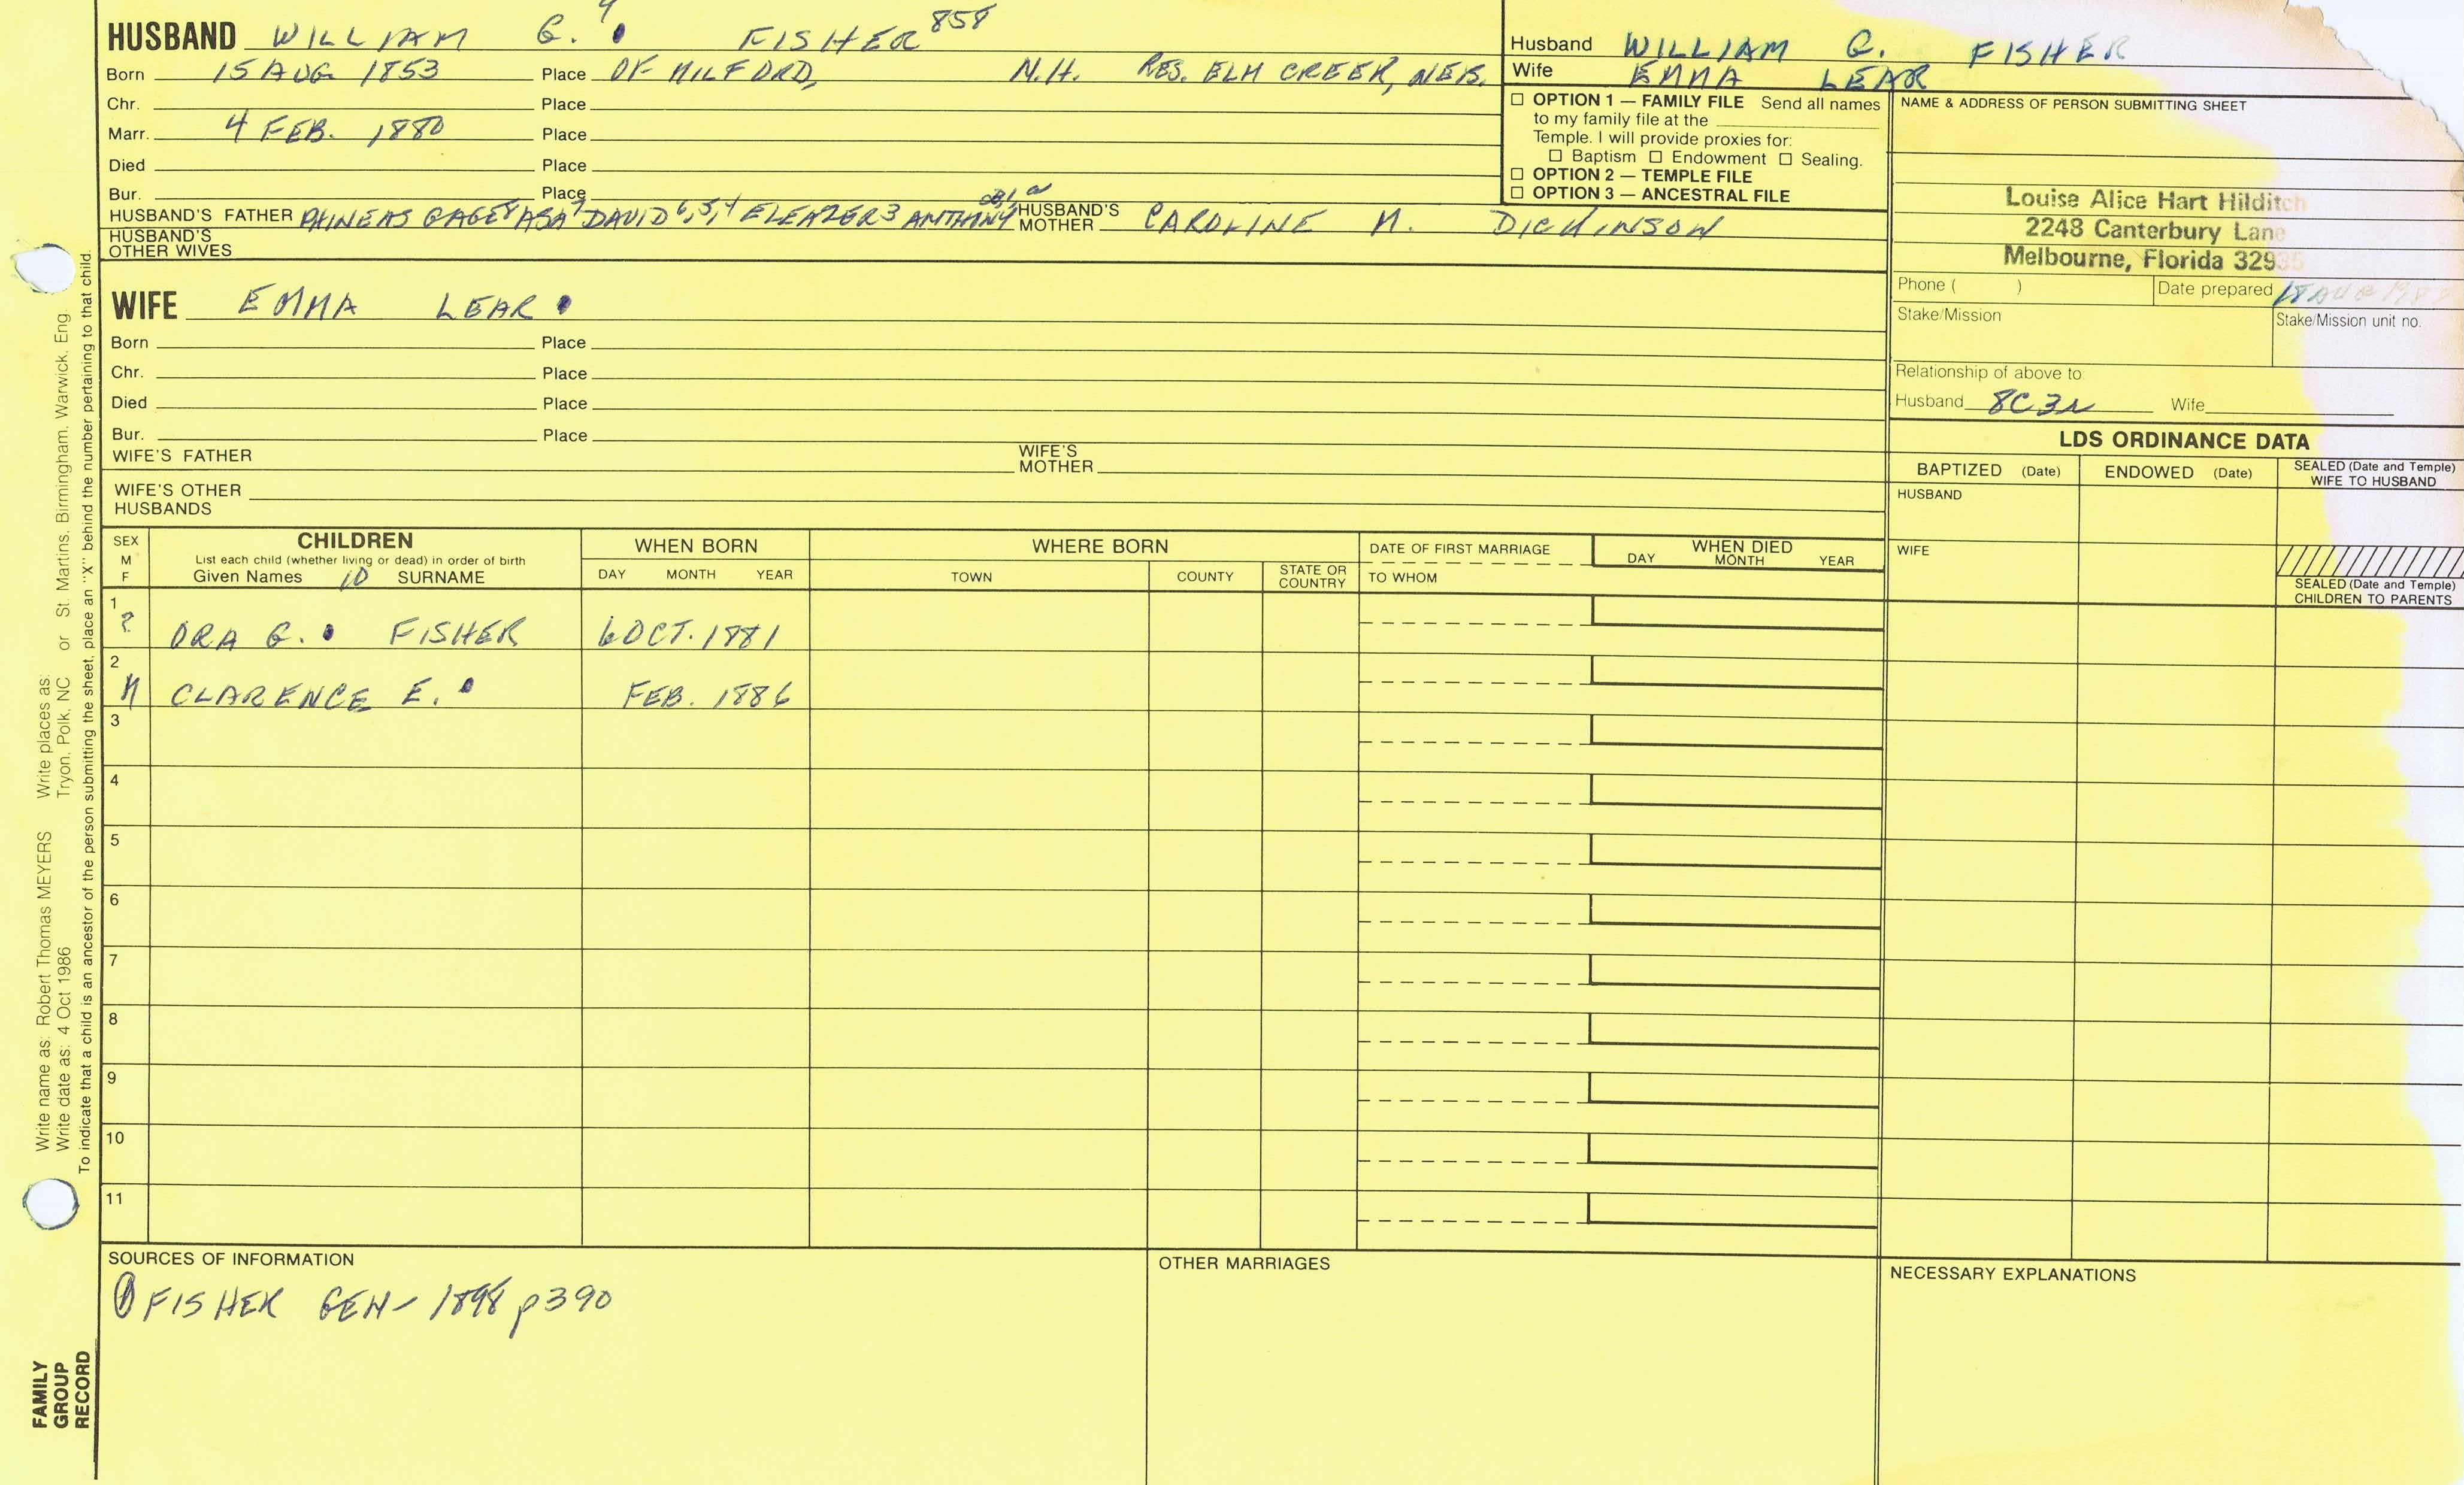 HUSBAND WILLIAM G. 9 FISHER 858
Born 15 AUG 1853 Place OF MILFORD, N.H. RES. ELM CREEK, NEB.
Chr. Place
Marr. 4 FEB. 1880 Place
Died Place
Bur. Place
HUSBAND'S FATHER PHINEAS GAGE8 ASA7 DAVID6,5,4 ELEAZER3 ANTHONY HUSBAND'S MOTHER CAROLINE M. DICKINSON
HUSBAND'S OTHER WIVES
Husband WILLIAM G. FISHER
Wife EMMA LEAR
☐ OPTION 1 — FAMILY FILE Send all names
to my family file at the
Temple. I will provide proxies for:
☐ Baptism ☐ Endowment ☐ Sealing.
☐ OPTION 2 — TEMPLE FILE
☐ OPTION 3 — ANCESTRAL FILE
NAME & ADDRESS OF PERSON SUBMITTING SHEET
Louise Alice Hart Hilditch
2248 Canterbury Lane
Melbourne, Florida 32935
Phone ( ) Date prepared
Stake/Mission Stake/Mission unit no.
Relationship of above to:
Husband 8C3R Wife
WIFE EMMA LEAR
Born Place
Chr. Place
Died Place
Bur. Place
WIFE'S FATHER WIFE'S MOTHER
WIFE'S OTHER
HUSBANDS
LDS ORDINANCE DATA
BAPTIZED (Date) ENDOWED (Date) SEALED (Date and Temple) WIFE TO HUSBAND
HUSBAND
WIFE
SEALED (Date and Temple)
CHILDREN TO PARENTS
SEX M F
CHILDREN
List each child (whether living or dead) in order of birth
Given Names 10 SURNAME
WHEN BORN
DAY MONTH YEAR
WHERE BORN
TOWN COUNTY STATE OR COUNTRY
DATE OF FIRST MARRIAGE
TO WHOM
WHEN DIED
DAY MONTH YEAR
1 ? ORA G. FISHER 6 OCT. 1881
2 M CLARENCE E. FEB. 1886
3
4
5
6
7
8
9
10
11
SOURCES OF INFORMATION
① FISHER GEN- 1898 p390
OTHER MARRIAGES
NECESSARY EXPLANATIONS
Write name as: Robert Thomas MEYERS Write places as: St. Martins, Birmingham, Warwick, Eng.
Write date as: 4 Oct 1986 Tryon, Polk, NC or
To indicate that a child is an ancestor of the person submitting the sheet, place an "X" behind the number pertaining to that child.
FAMILY
GROUP
RECORD